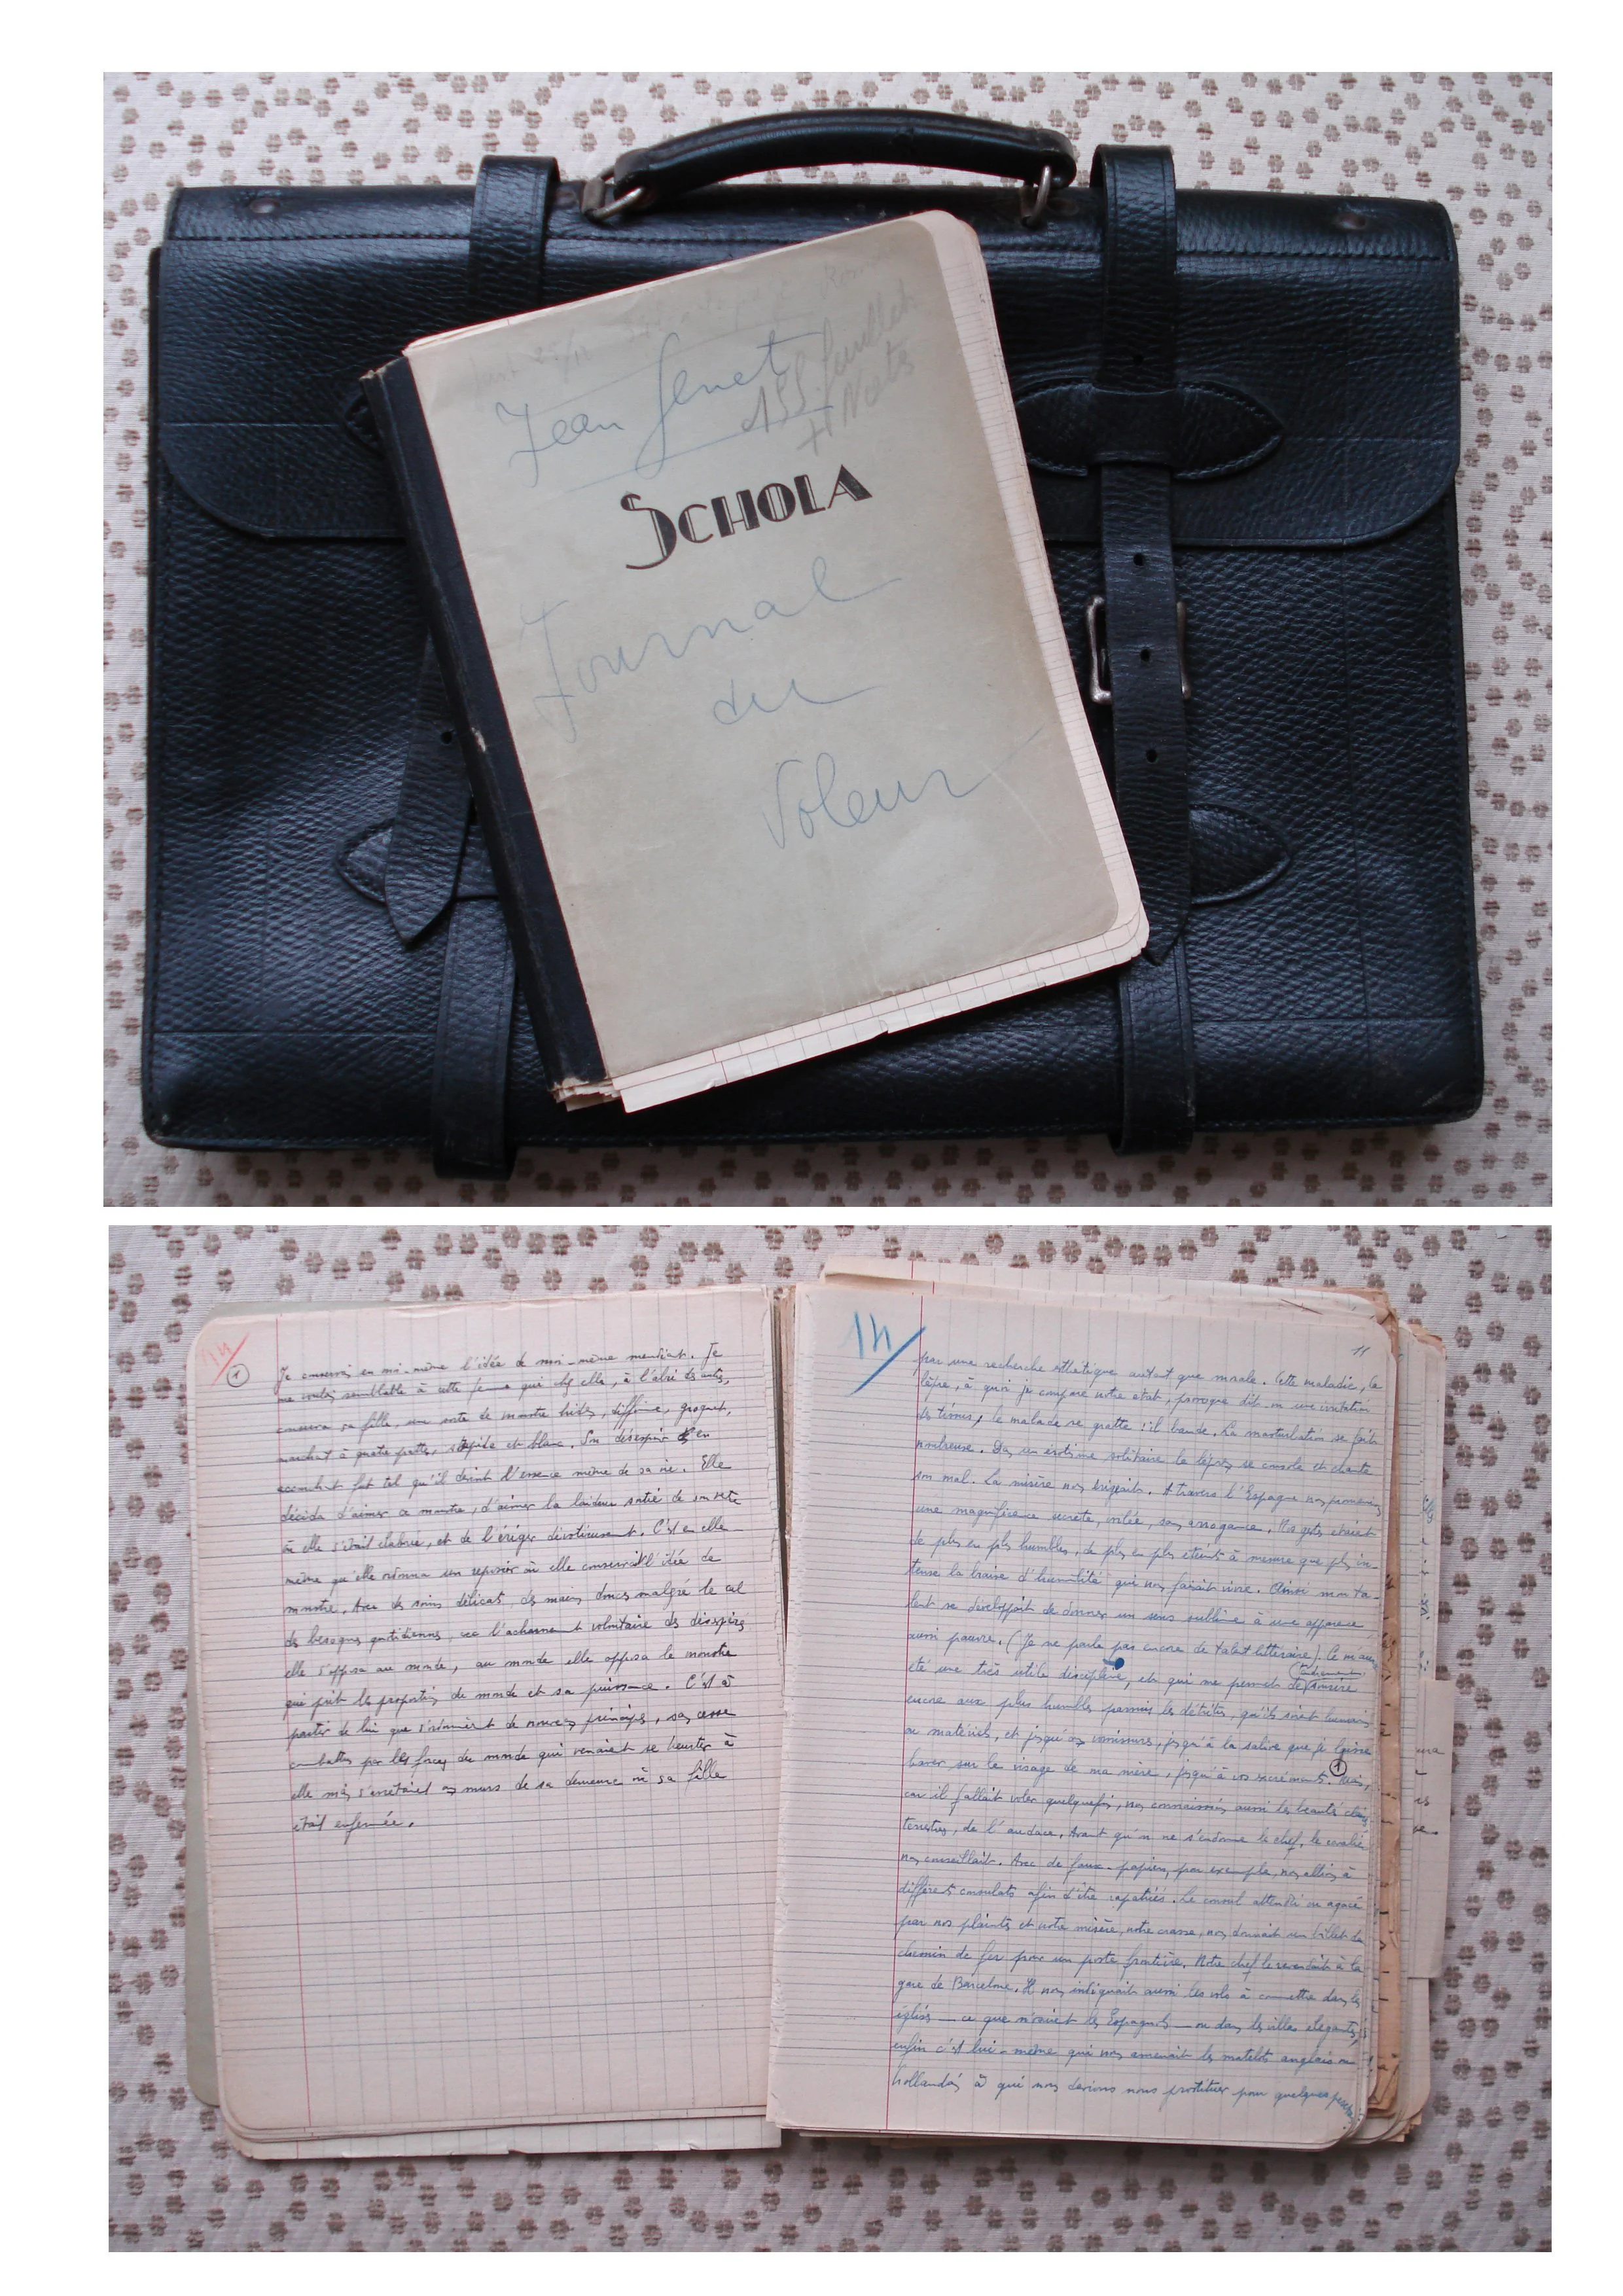 Jean Genet
155 feuillets
+ Notes
SCHOLA
Journal
du
Voleur
14
1
Je conserve en moi-même l'idée de moi-même mendiant. Je
me voulus semblable à cette femme qui chez elle, à l'abri des autres,
conserva sa fille, une sorte de monstre hideux, difforme, grognant,
marchant à quatre pattes, stupide et blanc. Son désespoir en
accouchant fut tel qu'il devint l'essence même de sa vie. Elle
décida d'aimer ce monstre, d'aimer la laideur sortie de son
où elle s'était élaborée, et de l'ériger dévotieusement. C'est en elle-
même qu'elle ordonna un reposoir où elle conservait l'idée de
monstre. Avec des soins délicats, des mains douces malgré le cal
des besognes quotidiennes, avec l'acharnement volontaire des désespérés
elle s'opposa au monde, au monde elle opposa le monstre
qui prit les proportions du monde et sa puissance. C'est à
partir de lui que s'ordonnèrent de nouveaux principes, sans cesse
combattus par les forces du monde qui venaient se heurter à
elle mais s'arrêtaient aux murs de sa demeure où sa fille
était enfermée.
14
11
par une recherche esthétique autant que morale. Cette maladie, la
lèpre, à quoi je compare notre état, provoque dit-on une irritation
des tissus, le malade se gratte : il bande. La masturbation se fait
nombreuse. Dans un érotisme solitaire le lépreux se console et chante
son mal. La misère nous érigeait. A travers l'Espagne nous promenions
une magnificence secrète, voilée, sans arrogance. Nos gestes étaient
de plus en plus humbles, de plus en plus éteints à mesure que plus in-
tense la braise d'humilité qui nous faisait vivre. Ainsi mon ta-
lent se développait de donner un sens sublime à une apparence
aussi pauvre. (Je ne parle pas encore de talent littéraire). Ce m'aura
été une très utile discipline, et qui me permet de sourire
encore aux plus humbles parmi les détritus, qu'ils soient humains
ou matériels, et jusqu'aux vomissures, jusqu'à la salive que je laisse
baver sur le visage de ma mère, jusqu'à vos excréments. 1 Mais,
car il fallait voler quelquefois, nous connaissions aussi les beautés claires
terrestres, de l'audace. Avant qu'on ne s'endorme le chef, le cavalier
nous conseillait. Avec de faux-papiers, par exemple, nous allions à
différents consulats afin d'être rapatriés. Le consul attendri ou agacé
par nos plaintes et notre misère, notre crasse, nous donnait un billet de
chemin de fer pour un poste frontière. Notre chef le revendait à la
gare de Barcelone. Il nous indiquait aussi les vols à commettre dans les
églises — ce que n'osaient les Espagnols — ou dans les villas élégantes,
enfin c'est lui-même qui nous amenait les matelots anglais ou
hollandais à qui nous devions nous prostituer pour quelques pesetas